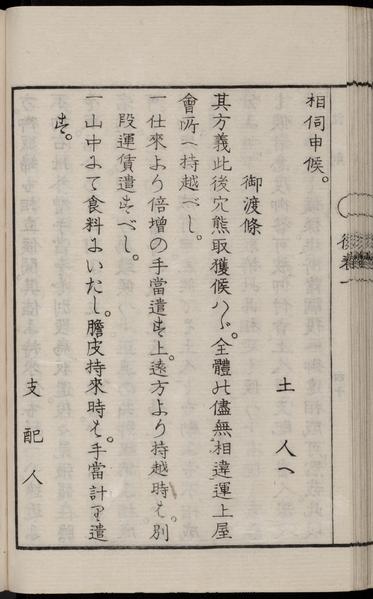 相伺申候。
土人へ
御渡條
其方義此後穴熊取獲候ハゞ。全體其儘無相違運上屋
會所へ持越べし。
一仕來より倍增の手當遣も上。遠方より持越時も。別
段運賃遣もべし。
一山中まて食料まいたし。膽皮持來時も。手當計り遣
も。
支配人